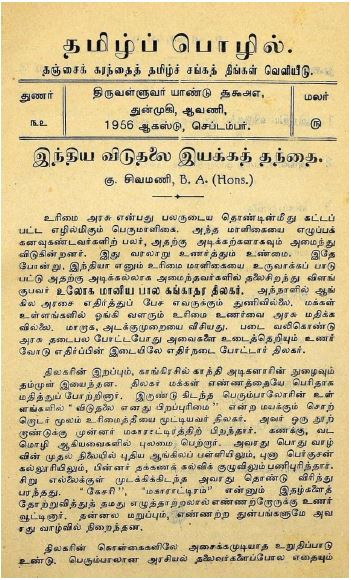 தமிழ்ப் பொழில்.
தஞ்சைக் கரந்தைத் தமிழ்ச் சங்கத் திங்கள் வெளியீடு.
துணர்
௩௨
திருவள்ளுவர் யாண்டு ௲௯௮௭,
துன்முகி, ஆவணி,
1956 ஆகஸ்டு, செப்டம்பர்.
மலர்
௫
இந்திய விடுதலை இயக்கத் தந்தை.
கு. சிவமணி, B. A. (Hons.)
உரிமை அரசு என்பது பலருடைய தொண்டின்மீது கட்டப்
பட்ட எழில்மிகும் பெருமாளிகை. அந்த மாளிகையை எழுப்பக்
கனவுகண்டவர்களிற் பலர், அதற்கு அடிக்கற்களாகவும் அமைந்து
விடுகின்றனர். இது வரலாறு உணர்த்தும் உண்மை. இதே
போன்று, இந்தியா எனும் உரிமை மாளிகையை உருவாக்கப் பாடு
பட்டு அதற்கு அடிக்கல்லாக அமைந்தவர்களில் தலைசிறந்து விளங்
குபவர் உலோக மானிய பால கங்காதர திலகர். அந்நாளில் ஆங்
கில அரசை எதிர்த்துப் பேச எவருக்கும் துணிவில்லை. மக்கள்
உள்ளங்களில் ஓங்கி வளரும் உரிமை உணர்வை அரசு மதிக்க
வில்லை. மாறாக, அடக்குமுறையை வீசியது. படை வலிகொண்டு
அரசு தடைபல போட்டபோது அவைகளை உடைத்தெறியும் உணர்
வோடு எதிர்ப்பின் இடையிலே எதிர்நடை போட்டார் திலகர்.
திலகரின் இறப்பும், காங்கிரசில் காந்தி அடிகளாரின் நுழைவும்
தம்முள் இயைந்தன. திலகர் மக்கள் எண்ணத்தையே பெரிதாக
மதித்துப் போற்றினார். இருண்டு கிடந்த பெரும்பாலோரின் உள்
ளங்களில் "விடுதலை எனது பிறப்புரிமை" என்ற மயக்கும் சொற்
றொடர் மூலம் உரிமைத்தீயை மூட்டியவர் திலகர். அவர் ஒரு நூற்
றாண்டுக்கு முன்னர் மகாராட்டிரத்திற் பிறந்தார். கணக்கு, வட
மொழி ஆகியவைகளில் புலமை பெற்றார். அவரது பொது வாழ்
வின் முதல் நிலையில் புதிய ஆங்கிலப் பள்ளியிலும், புனா பெர்குசன்
கல்லூரியிலும், பின்னர் தக்கணக் கல்விக் குழுவிலும் பணிபுரிந்தார்.
சிறு எல்லைக்குள் முடக்கிக்கிடந்த அவரது தொண்டு விரிந்து
பரந்தது. "கேசரி", "மகாராட்டிரம்" என்னும் இதழ்களைத்
தோற்றுவித்துத் தமது எழுத்தாற்றலால் எண்ணற்றோருக்கு உணர்
வூட்டினார். தன்னல மறுப்பும், எண்ணற்ற துன்பங்களுமே அவ
ரது வாழ்வில் நிறைந்தன.
திலகரின் கொள்கைகளிலே அசைக்கமுடியாத உறுதிப்பாடு
உண்டு. பெரும்பாலான அரசியல் தலைவர்களைப்போல எதையும்